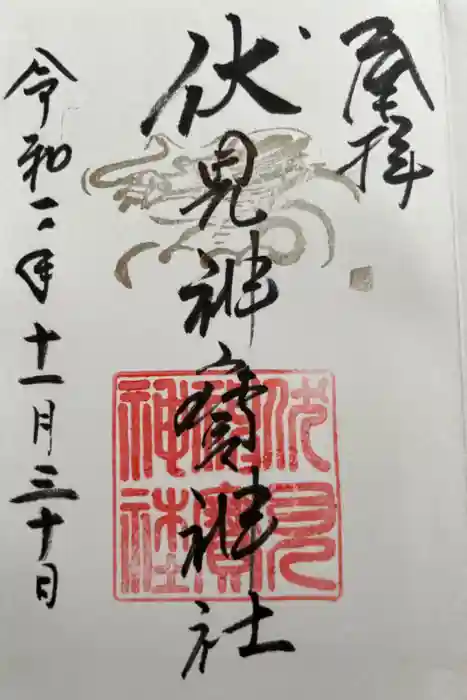 奉拝
伏見神寳神社
伏見
神寳
神社
令和二年十一月三十日